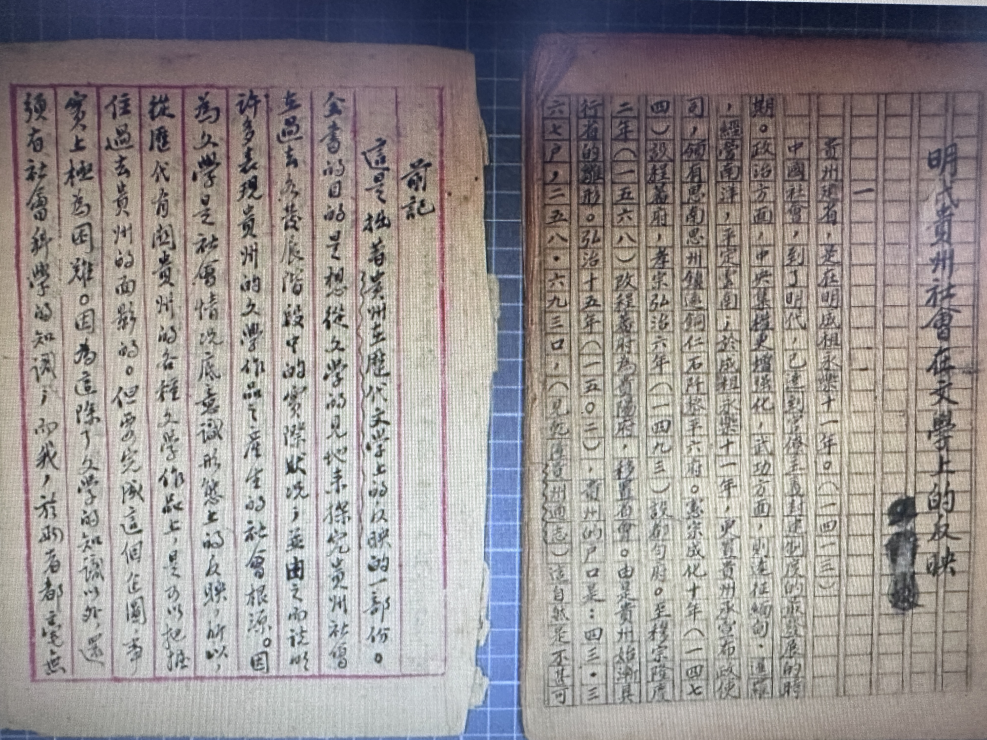 明代貴州社會在文學上的反映
一
貴州建省，是在明成祖永樂十一年。（一四一三）
中國社會，到了明代，已達到官僚主義封建制度的最發展的時
期。政治方面，中央集權更增強化，武功方面，則遠征緬甸、暹羅
，經營南洋，平定雲南；於成祖永樂十一年，更置貴州承宣布政使
司，領有思南思州鎮遠銅仁石阡黎平六府。憲宗成化十年（一四七
四）設程蕃府，孝宗弘治六年（一四九三）設都勻府。至穆宗隆慶
二年（一五六八）改程蕃府為貴陽府，移置省會。由是貴州始漸具
行省的雛形。弘治十五年（一五〇二），貴州的戶口是：四三·三
六七戶，二五八·六九三口，（見乾隆貴州通志）這自然是不甚可
前記
這是拙著貴州在歷代文學上的反映的一部份。
全書的目的是想從文學的見地來探究貴州社會
在過去各發展階段中的實際狀況；並由之而說明
許多表現貴州的文學作品之產生的社會根源。因
為文學是社會情況底意識形態上的反映，所以
從歷代有關貴州的各種文學作品上，是可以把握
住過去貴州的面影的。但要完成這個企圖，事
實上極為困難。因為這除了文學的知識以外，還
須有社會科學的知識；而我，於兩者都毫無